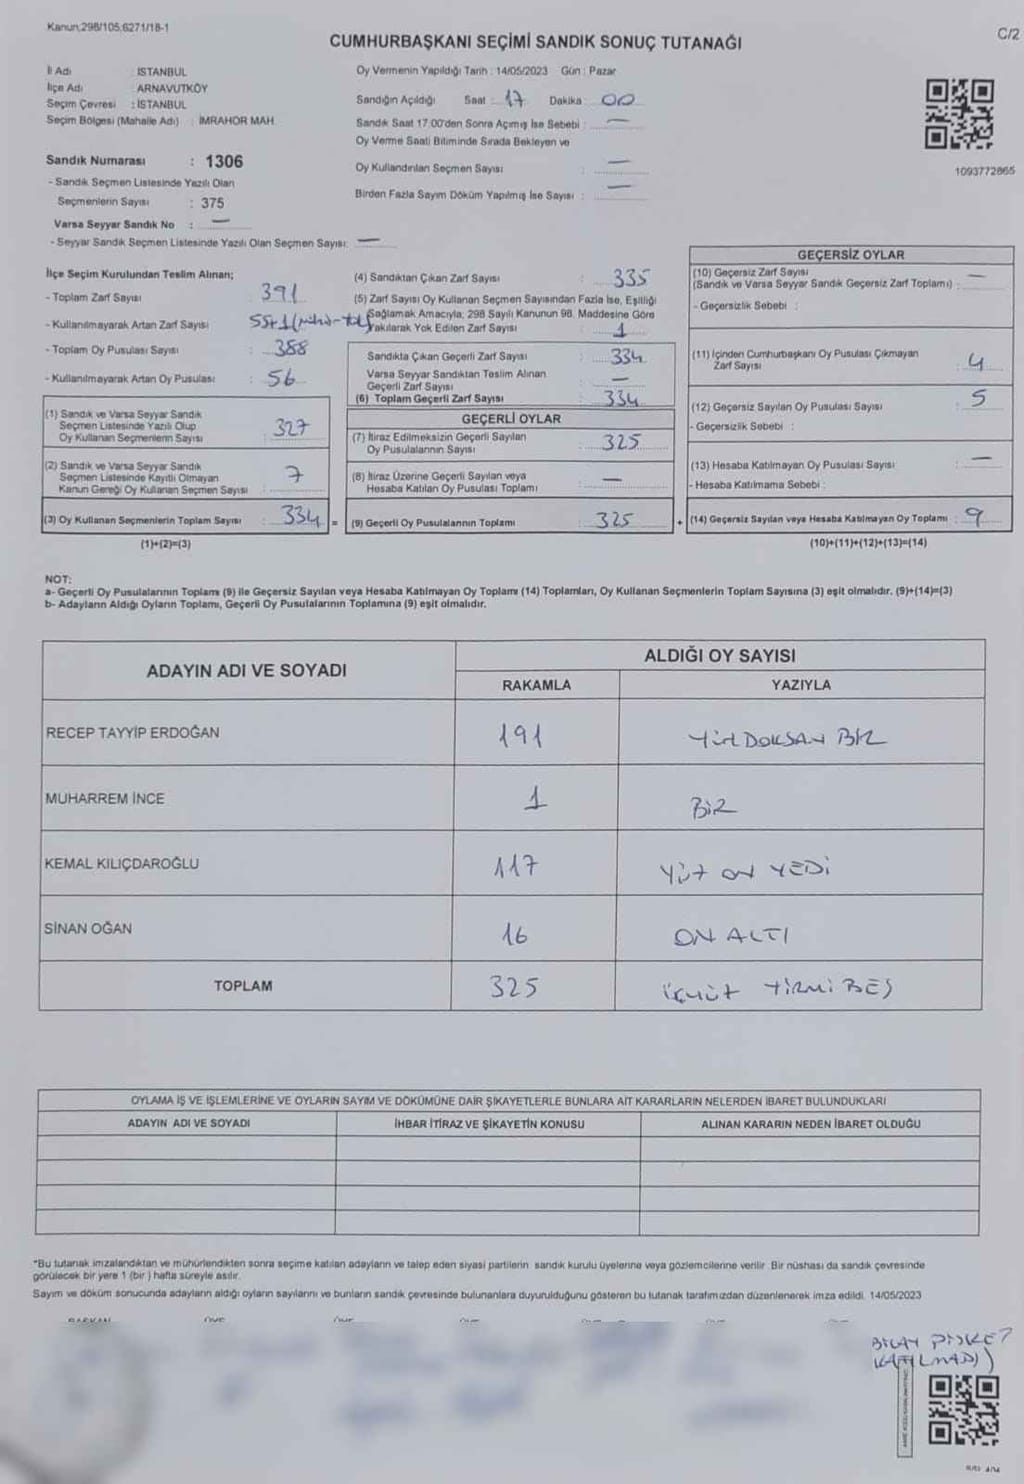 Kanun;298/105;6271/18-1
C/2
CUMHURBAŞKANI SEÇİMİ SANDIK SONUÇ TUTANAĞI
İl Adı : İSTANBUL
İlçe Adı : ARNAVUTKÖY
Seçim Çevresi : İSTANBUL
Seçim Bölgesi (Mahalle Adı) : İMRAHOR MAH.
Sandık Numarası : 1306
- Sandık Seçmen Listesinde Yazılı Olan
Seçmenlerin Sayısı : 375
Varsa Seyyar Sandık No : —
- Seyyar Sandık Seçmen Listesinde Yazılı Olan Seçmen Sayısı: —
Oy Vermenin Yapıldığı Tarih : 14/05/2023 Gün : Pazar
Sandığın Açıldığı Saat : 17 Dakika : 00
Sandık Saat 17:00'den Sonra Açılmış İse Sebebi : —
Oy Verme Saati Bitiminde Sırada Bekleyen ve
Oy Kullandırılan Seçmen Sayısı : —
Birden Fazla Sayım Döküm Yapılmış İse Sayısı : —
1093772865
İlçe Seçim Kurulundan Teslim Alınan;
- Toplam Zarf Sayısı : 391
- Kullanılmayarak Artan Zarf Sayısı 55+1
- Toplam Oy Pusulası Sayısı : 388
- Kullanılmayarak Artan Oy Pusulası : 56
(1) Sandık ve Varsa Seyyar Sandık
Seçmen Listesinde Yazılı Olup
Oy Kullanan Seçmenlerin Sayısı : 327
(2) Sandık ve Varsa Seyyar Sandık
Seçmen Listesinde Kayıtlı Olmayan
Kanun Gereği Oy Kullanan Seçmen Sayısı : 7
(3) Oy Kullanan Seçmenlerin Toplam Sayısı : 334 =
(1)+(2)=(3)
(4) Sandıktan Çıkan Zarf Sayısı : 335
(5) Zarf Sayısı Oy Kullanan Seçmen Sayısından Fazla İse, Eşitliği
Sağlamak Amacıyla, 298 Sayılı Kanunun 98. Maddesine Göre
Yakılarak Yok Edilen Zarf Sayısı : 1
Sandıkta Çıkan Geçerli Zarf Sayısı : 334
Varsa Seyyar Sandıktan Teslim Alınan
Geçerli Zarf Sayısı : —
(6) Toplam Geçerli Zarf Sayısı : 334
GEÇERLİ OYLAR
(7) İtiraz Edilmeksizin Geçerli Sayılan
Oy Pusulalarının Sayısı : 325
(8) İtiraz Üzerine Geçerli Sayılan veya
Hesaba Katılan Oy Pusulası Toplamı : —
(9) Geçerli Oy Pusulalarının Toplamı : 325 +
GEÇERSİZ OYLAR
(10) Geçersiz Zarf Sayısı
(Sandık ve Varsa Seyyar Sandık Geçersiz Zarf Toplamı) : —
- Geçersizlik Sebebi :
(11) İçinden Cumhurbaşkanı Oy Pusulası Çıkmayan
Zarf Sayısı : 4
(12) Geçersiz Sayılan Oy Pusulası Sayısı : 5
- Geçersizlik Sebebi :
(13) Hesaba Katılmayan Oy Pusulası Sayısı : —
- Hesaba Katılmama Sebebi :
(14) Geçersiz Sayılan veya Hesaba Katılmayan Oy Toplamı : 9
(10)+(11)+(12)+(13)=(14)
NOT:
a- Geçerli Oy Pusulalarının Toplamı (9) ile Geçersiz Sayılan veya Hesaba Katılmayan Oy Toplamı (14) Toplamları, Oy Kullanan Seçmenlerin Toplam Sayısına (3) eşit olmalıdır. (9)+(14)=(3)
b- Adayların Aldığı Oyların Toplamı, Geçerli Oy Pusulalarının Toplamına (9) eşit olmalıdır.
ADAYIN ADI VE SOYADI
ALDIĞI OY SAYISI
RAKAMLA YAZIYLA
RECEP TAYYİP ERDOĞAN 191 YÜZ DOKSAN BİR
MUHARREM İNCE 1 BİR
KEMAL KILIÇDAROĞLU 117 YÜZ ON YEDİ
SİNAN OĞAN 16 ON ALTI
TOPLAM 325 ÜÇYÜZ YİRMİ BEŞ
OYLAMA İŞ VE İŞLEMLERİNE VE OYLARIN SAYIM VE DÖKÜMÜNE DAİR ŞİKAYETLERLE BUNLARA AİT KARARLARIN NELERDEN İBARET BULUNDUKLARI
ADAYIN ADI VE SOYADI İHBAR İTİRAZ VE ŞİKAYETİN KONUSU ALINAN KARARIN NEDEN İBARET OLDUĞU
*Bu tutanak imzalandıktan ve mühürlendikten sonra seçime katılan adayların ve talep eden siyasi partilerin sandık kurulu üyelerine veya gözlemcilerine verilir. Bir nüshası da sandık çevresinde
görülecek bir yere 1 (bir ) hafta süreyle asılır.
Sayım ve döküm sonucunda adayların aldığı oyların sayılarını ve bunların sandık çevresinde bulunanlara duyurulduğunu gösteren bu tutanak tarafımızdan düzenlenerek imza edildi. 14/05/2023
KATILMADI)